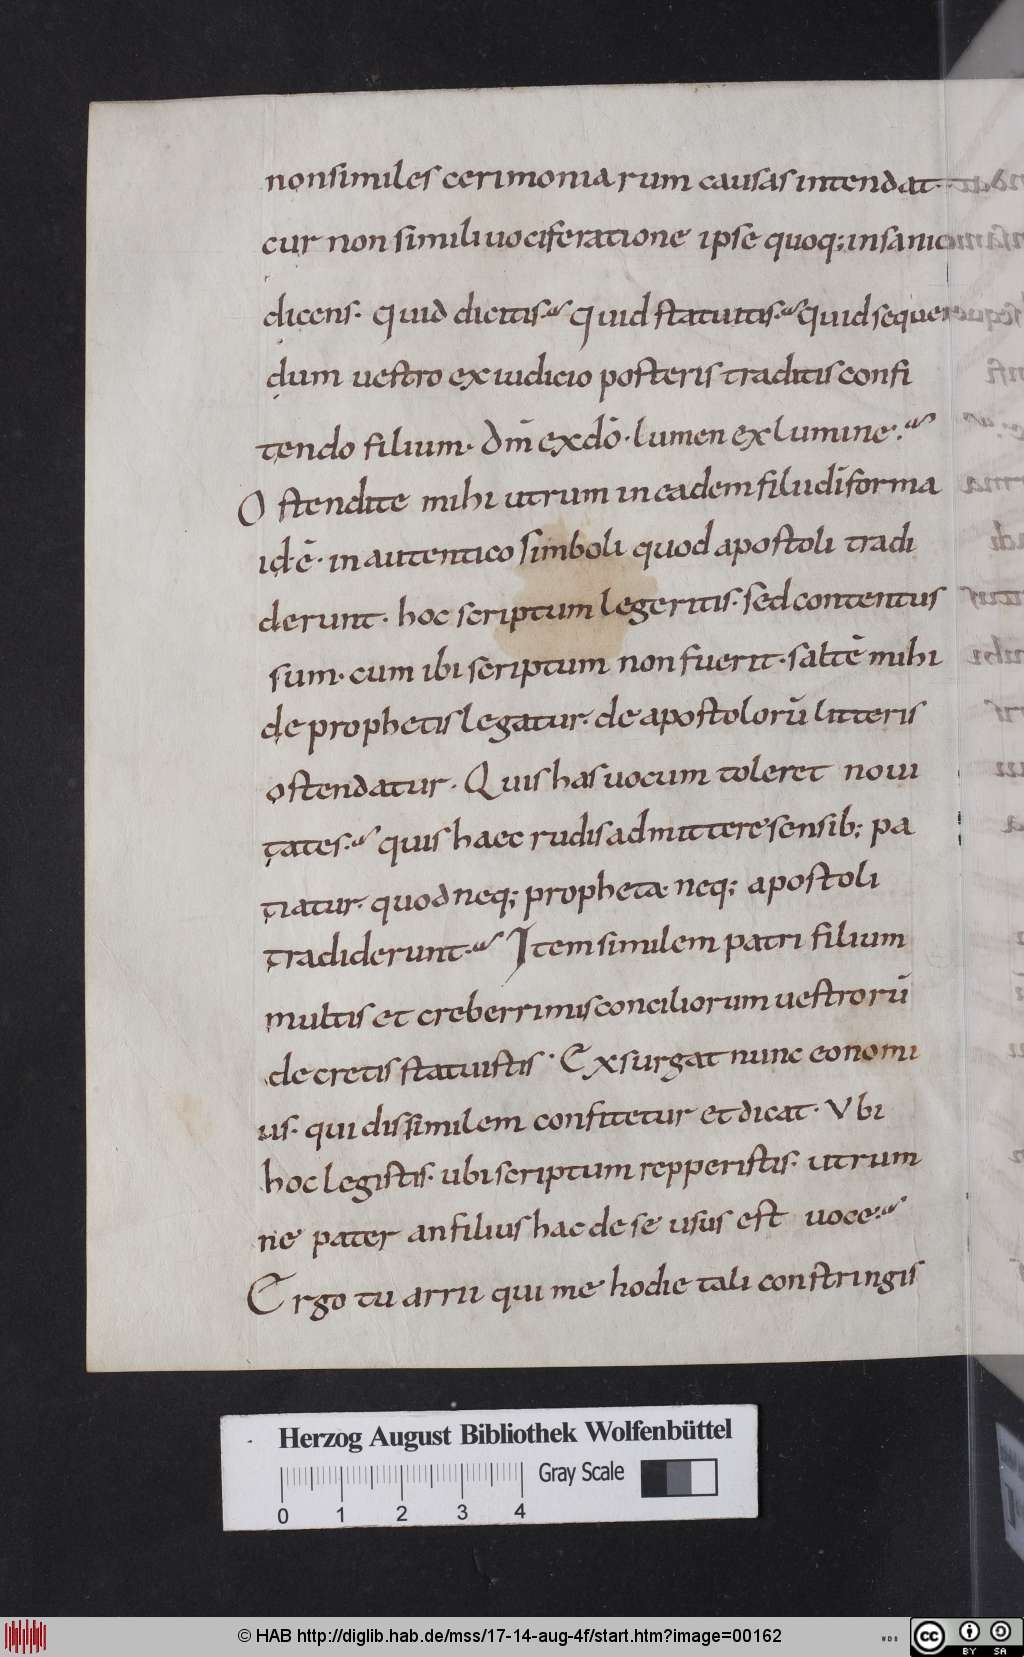 nonsimiles cerimoniarum causas intendat·
cur non simili uociferatione ipse quoq; insanio
dicens· quid dicitis· quid statuitis· quid sequen
dum uestro ex iudicio posteris traditis confi
tendo filium· dm̄ ex dō· lumen ex lumine·
Ostendite mihi utrum in eadem filii dī forma
id ē· in autentico simboli quod apostoli tradi
derunt· hoc scriptum legeritis· sed contentus
sum· cum ibi scriptum non fuerit· saltē mihi
de prophetis legatur· de apostolorū litteris
ostendatur· Quis has uocum toleret noui
tates· quis haec rudis admittere sensib; pa
tiatur· quod neq; prophetæ neq; apostoli
tradiderunt· Item similem patri filium
multis et creberrimis conciliorum uestrorū
decretis statuistis· Exsurgat nunc eonomi
us· qui dissimilem confitetur et dicat· Vbi
hoc legistis· ubi scriptum repperistis· utrum
ne pater an filius hac de se usus est uoce·
Ergo tu arrii qui me hodie tali constringis
Herzog August Bibliothek Wolfenbüttel
Gray Scale
0 1 2 3 4
© HAB http://diglib.hab.de/mss/17-14-aug-4f/start.htm?image=00162
WDB
cc BY SA